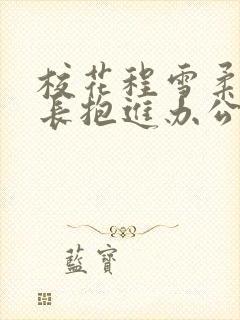 校花程雪柔
长抱进办公
藍寶